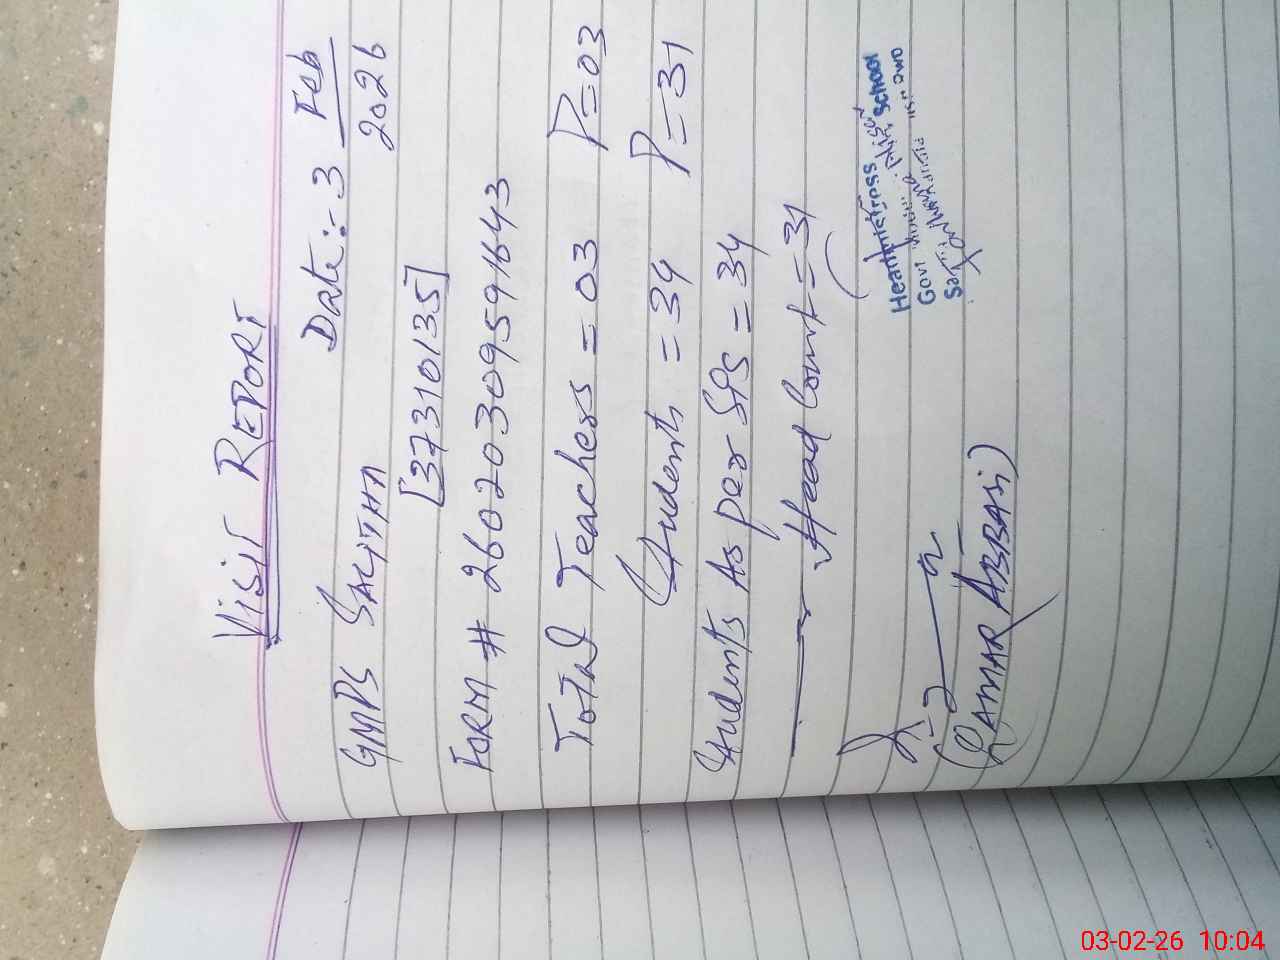 VISIT REPORT
Date:- 3 Feb 2026
GMPS SALITHA
[37310135]
FORM # 26020309591643
Total Teachers = 03 P=03
Student = 34 P=31
Students As per SIS = 34
Head Count = 31
Headmistress
Govt School
(QAMAR ABBASI)
03-02-26 10:04